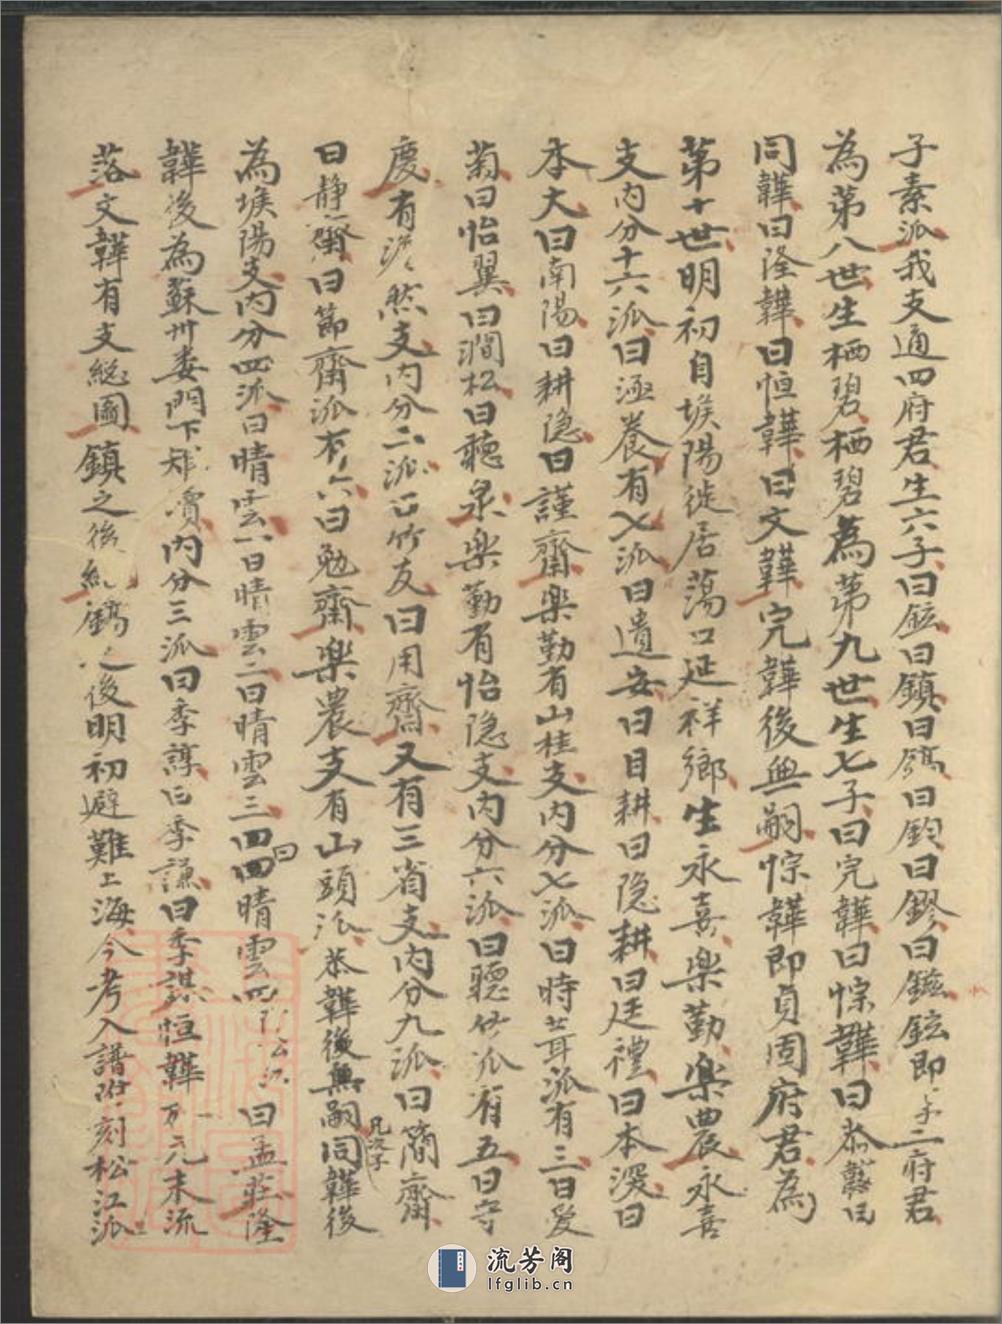 子素派我支通四府君生六子曰鉉曰鎮曰鎬曰鈞曰鏐曰鑑鉉即二府君
為第八世生栖碧栖碧為第九世生七子曰完韡曰悰韡曰恭韡曰
同韡曰隆韡曰恒韡曰文韡完韡後無嗣悰韡即貞固府君為
第十世明初自堠陽徙居蕩口延祥鄉生永喜樂勤樂農永喜
支內分十六派曰逐養有七派曰遺安曰目耕曰隐耕曰廷禮曰本深曰
本大曰南陽曰耕隐曰謹齋樂勤有山桂支內分七派曰時茸派有三曰愛
菊曰怡翼曰澗松曰聽泉樂勤有怡隐支內分六派曰聽竹派有五曰守
慶有浩然支內分二派曰竹友曰用齋又有三省支內分九派曰簡齋
曰靜齋曰節齋派有六曰勉齋樂農支有山頭派恭韡後無嗣同韡後
為堠陽支內分四派曰晴雲一曰晴雲二曰晴雲三曰四晴雲四曰孟莊隆
韡後為蘇州婁門下內分三派曰季諄曰季謙曰季謀恒韡元末流
落文韡有支総圖鎮之後鎬之後明初避難上海今考入譜附刻松江派
凡次子
曰
流芳阁
lfglib.cn